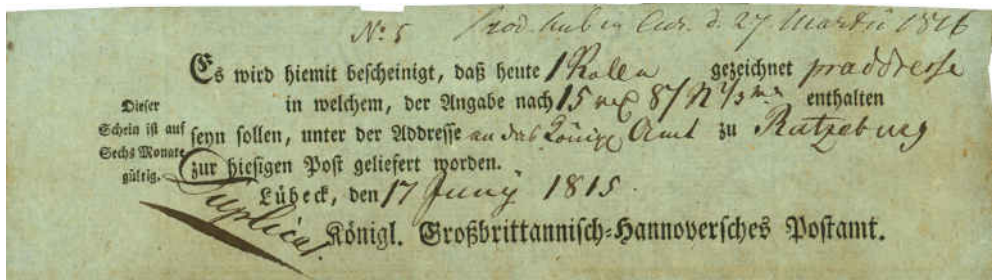 No: 5 Prod. d. 27 Martii 1816
Es wird hiemit bescheinigt, daß heute 1 Rolle gezeichnet per addresse
in welchem, der Angabe nach 15 enthalten
seyn sollen, unter der Addresse an das Königl Amt zu Ratzeburg
zur hiesigen Post geliefert worden.
Dieser
Schein ist auf
Sechs Monate
gültig.
Lübeck, den 17 Juny 1815.
Duplicat.
Königl. Großbrittannisch-Hannoversches Postamt.